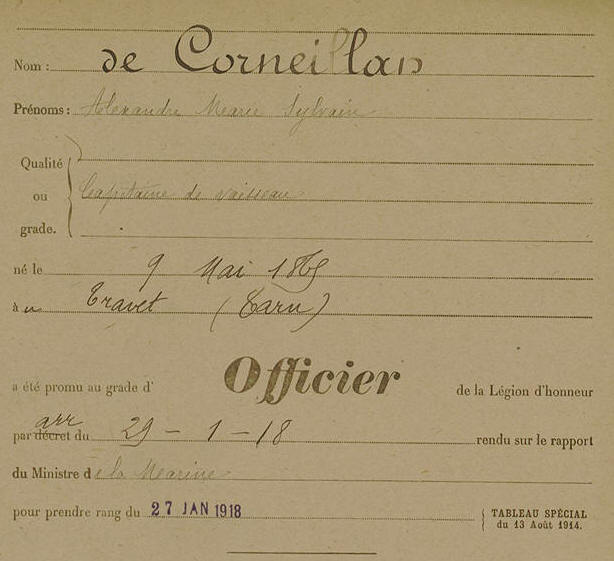 Nom : de Corneillan
Prénoms : Alexandre Marie Sylvain
Qualité
ou Capitaine de vaisseau
grade.
né le 9 Mai 1865
à u Travet (Tarn)
a été promu au grade d' Officier de la Légion d'honneur
arr
par décret du 29 - 1 - 18 rendu sur le rapport
du Ministre de la Marine
pour prendre rang du 27 JAN 1918 TABLEAU SPÉCIAL
du 13 Août 1914.